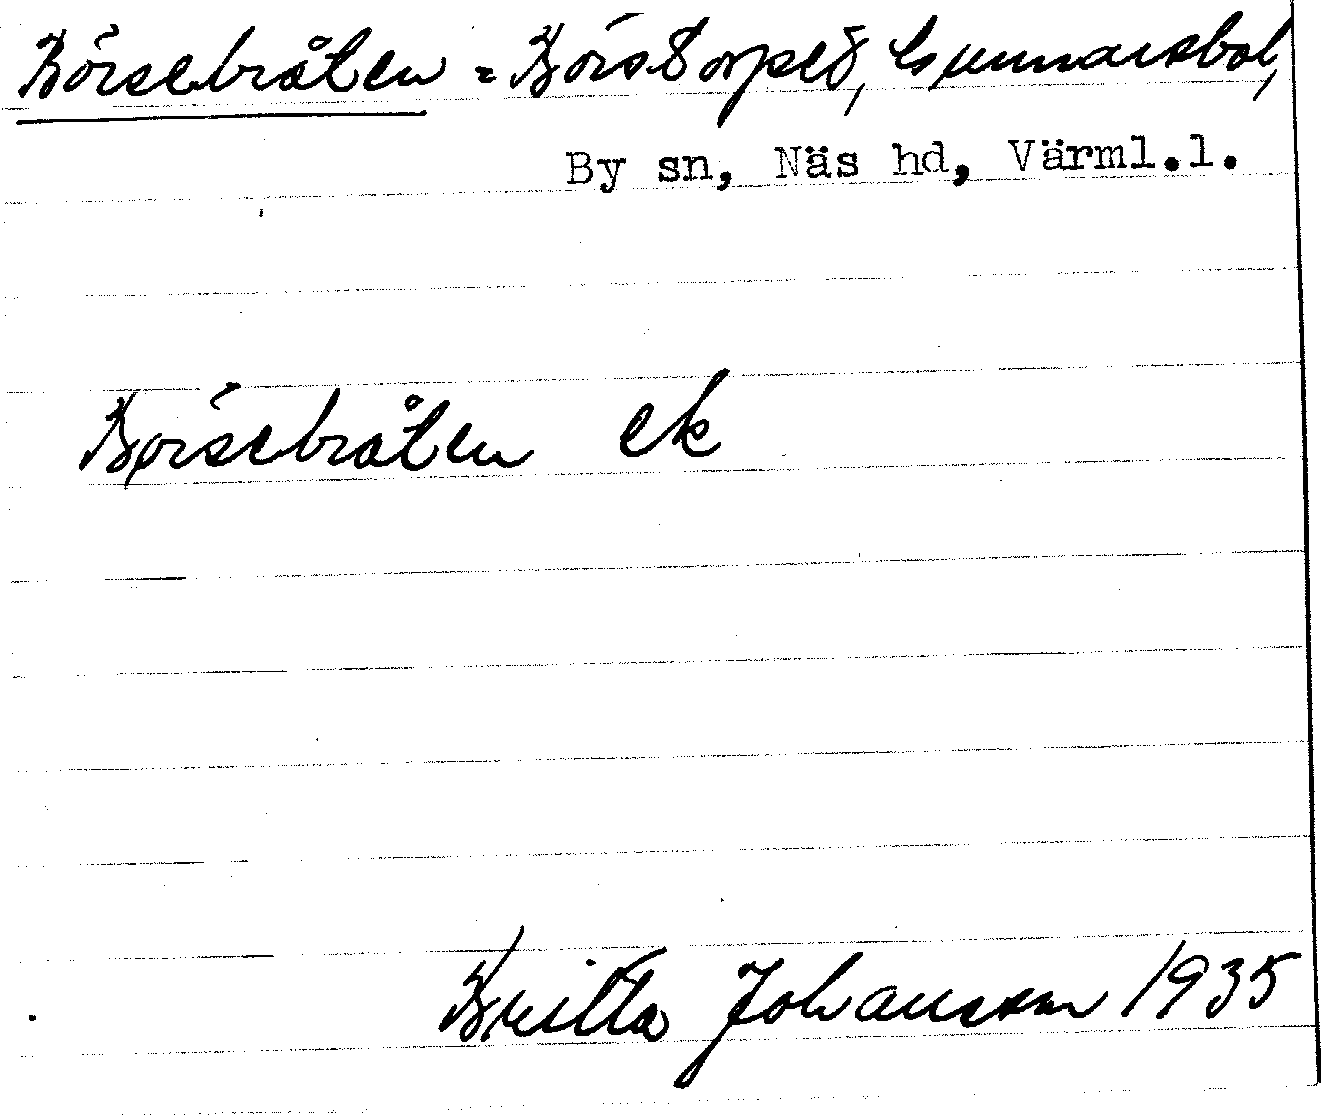 Börsebråten = Börstorpet, Gunnarsbol,
By sn, Näs hd, Värml.l.
Börsebråten ek
Britta Johansson 1935